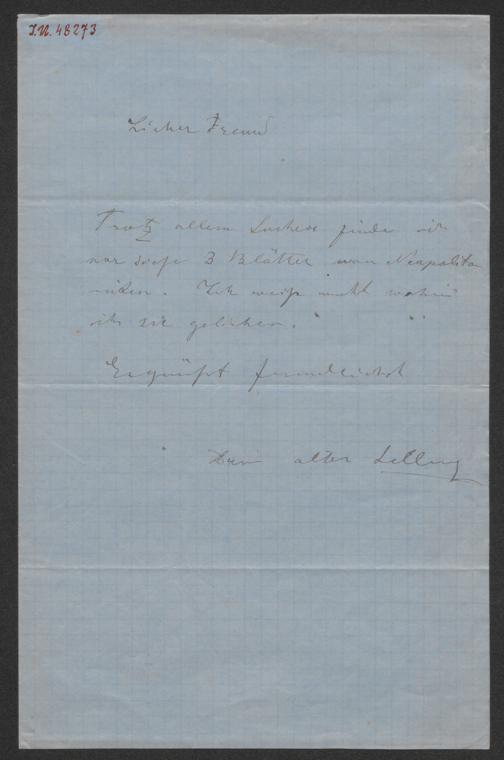 I.N. 48273
Lieber Freund
Trotz allem Suchen finde ich
nur diese 3 Blätter von Neapolita
nischen. Ich weiß nicht wohin
ich sie geliehen.
Es grüßt freundlichst
Dein alter